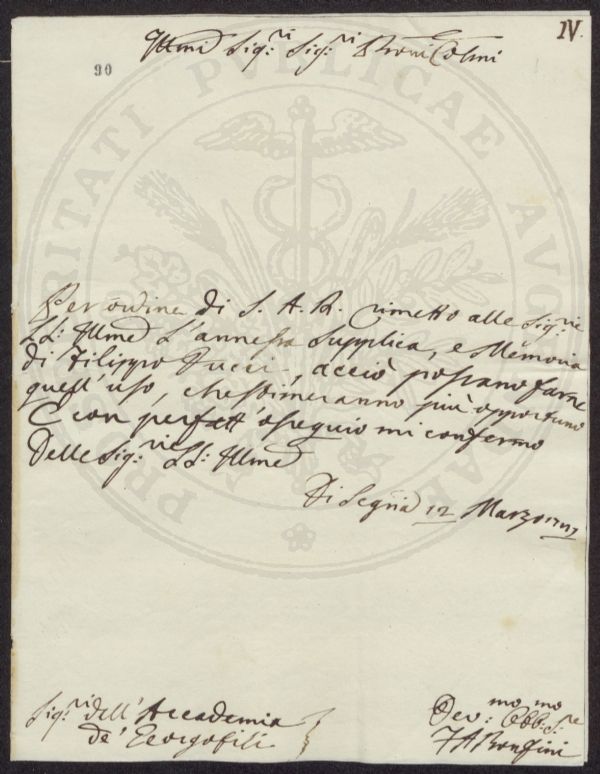 IV.
Illmi Sig:ri Sig:ri Proni Colmi
90
Per ordine di S. A. R. rimetto alle Sig:rie
LL: Illme l'annessa Supplica, e Memoria
di Filippo Pucci, acciò possano farne
quell'uso, che stimeranno più opportuno
E con perfett'ossequio mi confermo
Delle Sig:rie LL: Illme
Di Segria 12 Marzo
Sig:ri dell'Accademia
de' Georgofili
Dev:mo Obb:mo S:re
PRO PERITATI PVBLICAE AVG AE